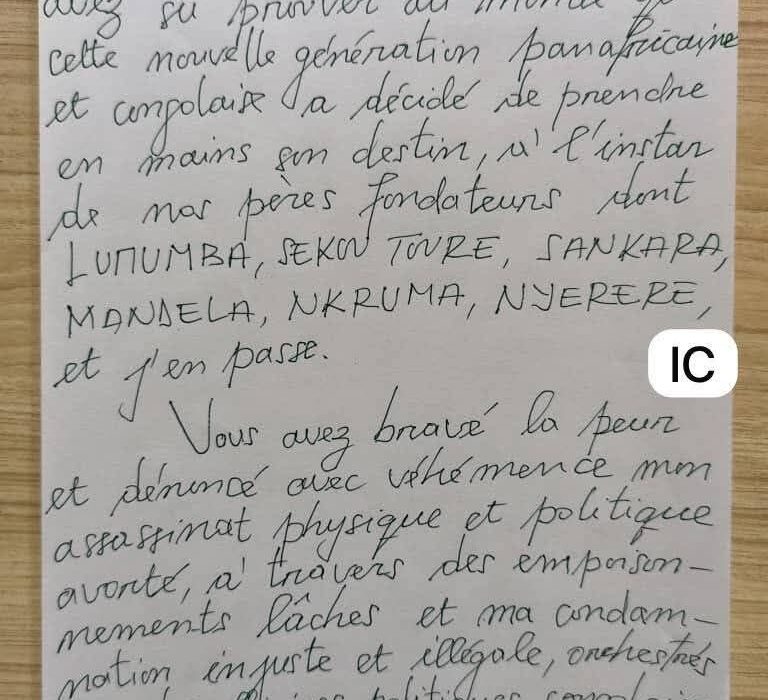 avez su prouver au monde
cette nouvelle génération panafricaine
et congolaise a décidé de prendre
en mains son destin, à l'instar
de nos pères fondateurs dont
LUMUMBA, SEKOU TOURE, SANKARA,
MANDELA, NKRUMA, NYERERE,
et j'en passe.
IC
Vous avez bravé la peur
et dénoncé avec véhémence mon
assassinat physique et politique
avorté, à travers des empoison-
nements lâches et ma condam-
nation injuste et illégale, orchestrés
politiques